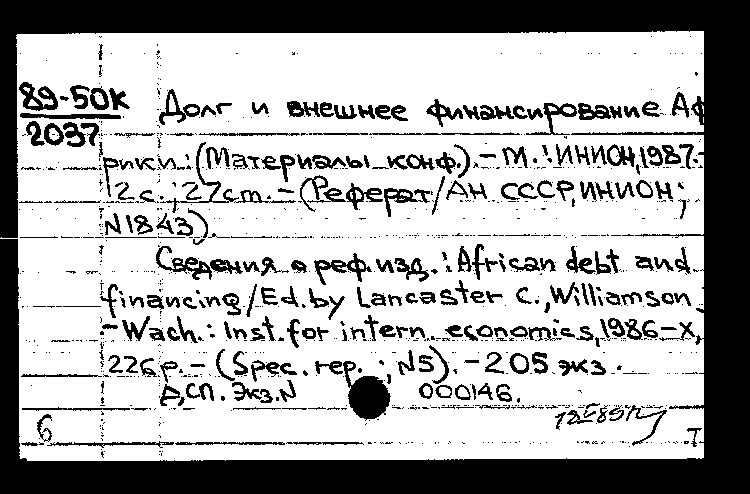 89-50К Долг и внешнее финансирование Аф
2037
рики: (Материалы конф.).-М.:ИНИОН,1987.-
12 с.; 27cm. - (Реферат/АН СССР,ИНИОН;
N1843).
Сведения о реф.изд.: African debt and
financing/Ed.by Lancaster C., Williamson
-Wach.: Inst.for intern. economics, 1986-X,
226p. - (Spec. rep. ; N5). - 205 экз.
Д,СП. Экз.N 000146.
6
Т